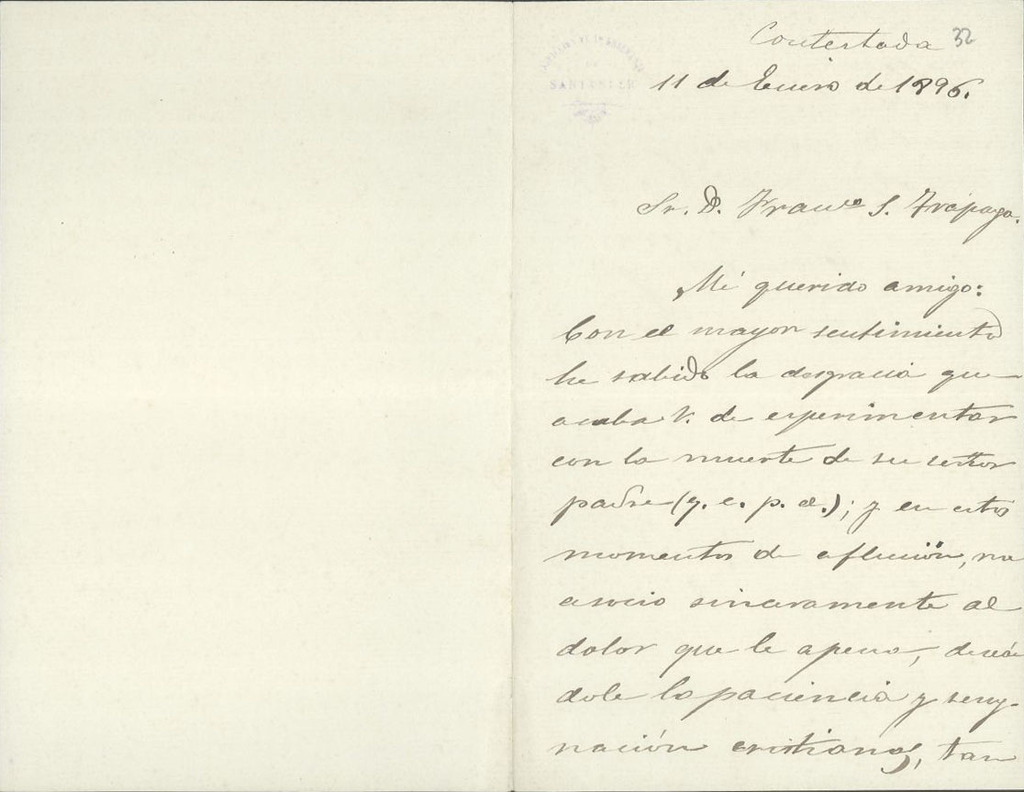 Contestada 32
SANTANDER
11 de Enero de 1896.
Sr. D. Franco S. Trápaga.
Mi querido amigo:
Con el mayor sentimiento
he sabido la desgracia que
acaba V. de esperimentar
con la muerte de su señor
padre (q. e. p. d.); y en estos
momentos de aflicción, me
asocio sinceramente al
dolor que le apena, deseán
dole la paciencia y resig-
nación cristianas, tan